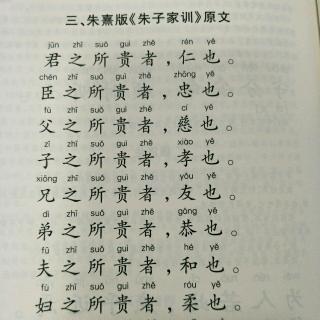 三、朱熹版《朱子家训》原文
jūn zhī suǒ guì zhě rén yě
君之所贵者,仁也。
chén zhī suǒ guì zhě zhōng yě
臣之所贵者,忠也。
fù zhī suǒ guì zhě cí yě
父之所贵者,慈也。
zǐ zhī suǒ guì zhě xiào yě
子之所贵者,孝也。
xiōng zhī suǒ guì zhě yǒu yě
兄之所贵者,友也。
dì zhī suǒ guì zhě gōng yě
弟之所贵者,恭也。
fū zhī suǒ guì zhě hé yě
夫之所贵者,和也。
fù zhī suǒ guì zhě róu yě
妇之所贵者,柔也。